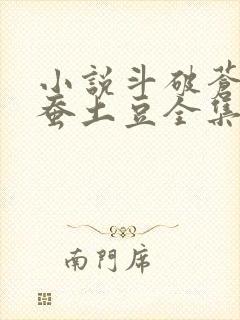 小說斗破蒼
蚕土豆全集
南門席